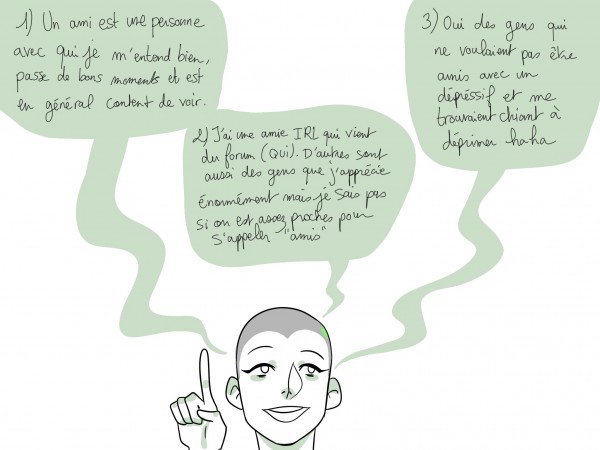 1) Un ami est une personne
avec qui je m'entend bien,
passe de bons moments et est
en général content de voir.
2) J'ai une amie IRL qui vient
du forum (QUI). D'autres sont
aussi des gens que j'apprécie
énormément mais je sais pas
si on est assez proches pour
s'appeler "amis"
3) Oui des gens qui
ne voulaient pas être
amis avec un
dépressif et me
trouvaient chiant à
déprimer haha